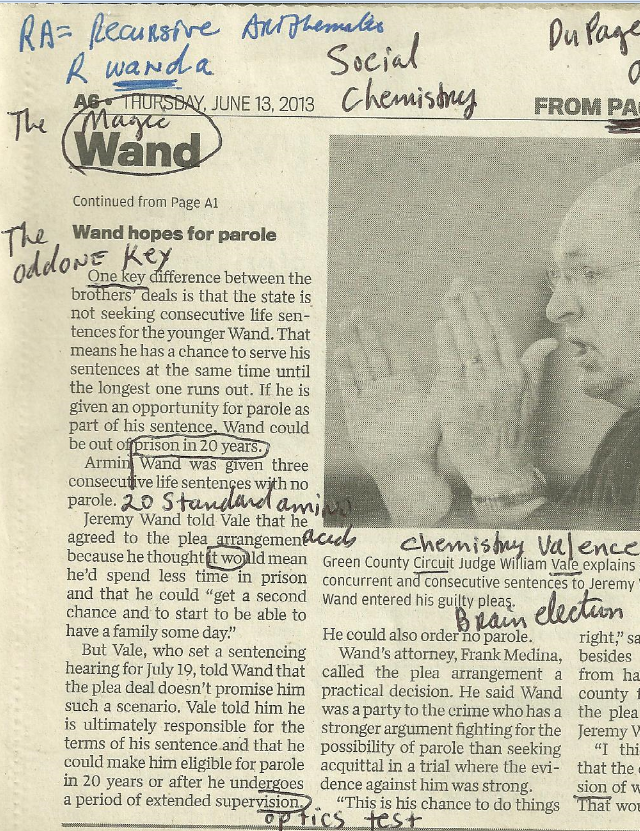 RA= Recursive Arithematic
R wanda
Social
Chemistry
DuPage
A6 • THURSDAY, JUNE 13, 2013
FROM PA
The Magic
Wand
Continued from Page A1
Wand hopes for parole
The
oddONE Key
One key difference between the
brothers’ deals is that the state is
not seeking consecutive life sen-
tences for the younger Wand. That
means he has a chance to serve his
sentences at the same time until
the longest one runs out. If he is
given an opportunity for parole as
part of his sentence, Wand could
be out of prison in 20 years.
Armin Wand was given three
consecutive life sentences with no
parole.
20 Standard amino
acids
Jeremy Wand told Vale that he
agreed to the plea arrangement
because he thought it would mean
he’d spend less time in prison
and that he could “get a second
chance and to start to be able to
have a family some day.”
But Vale, who set a sentencing
hearing for July 19, told Wand that
the plea deal doesn’t promise him
such a scenario. Vale told him he
is ultimately responsible for the
terms of his sentence and that he
could make him eligible for parole
in 20 years or after he undergoes
a period of extended supervision.
optics test
Chemistry Valence
Green County Circuit Judge William Vale explains
concurrent and consecutive sentences to Jeremy
Wand entered his guilty pleas.
Brain election
He could also order no parole.
Wand’s attorney, Frank Medina,
called the plea arrangement a
practical decision. He said Wand
was a party to the crime who has a
stronger argument fighting for the
possibility of parole than seeking
acquittal in a trial where the evi-
dence against him was strong.
“This is his chance to do things
right,” sa
besides
from ha
county f
the plea
Jeremy W
“I thi
that the
sion of w
That wou